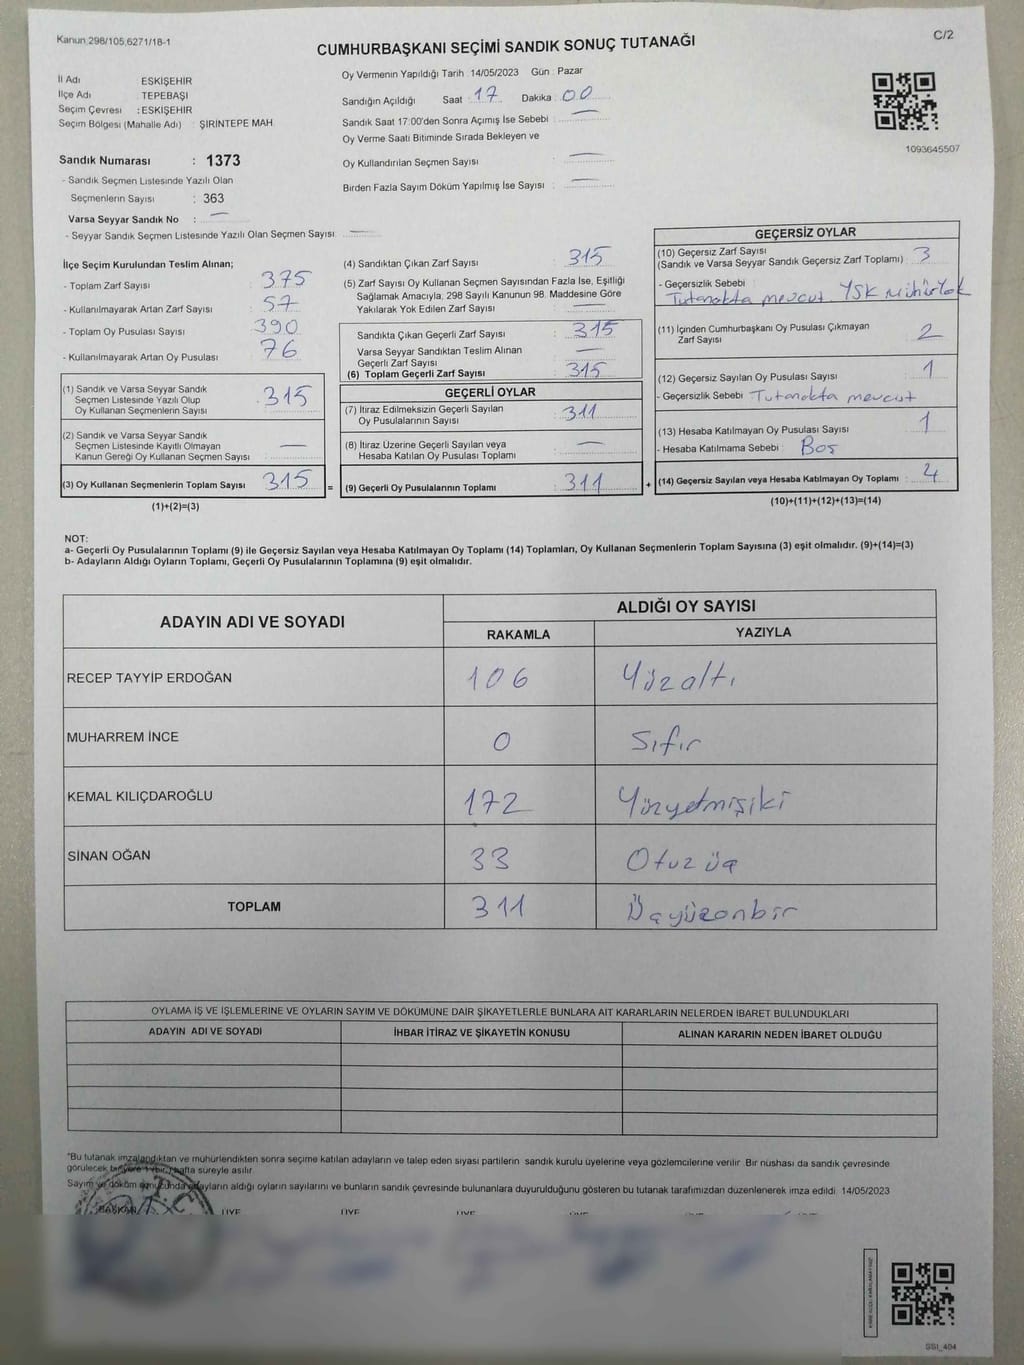 Kanun 298/105,6271/18-1
C/2
CUMHURBAŞKANI SEÇİMİ SANDIK SONUÇ TUTANAĞI
İl Adı ESKİŞEHİR
İlçe Adı : TEPEBAŞI
Seçim Çevresi : ESKİŞEHİR
Seçim Bölgesi (Mahalle Adı) : ŞİRİNTEPE MAH.
Sandık Numarası : 1373
- Sandık Seçmen Listesinde Yazılı Olan
Seçmenlerin Sayısı : 363
Varsa Seyyar Sandık No : —
- Seyyar Sandık Seçmen Listesinde Yazılı Olan Seçmen Sayısı: —
Oy Vermenin Yapıldığı Tarih : 14/05/2023 Gün : Pazar
Sandığın Açıldığı Saat : 17 Dakika : 00
Sandık Saat 17:00'den Sonra Açımış İse Sebebi : —
Oy Verme Saati Bitiminde Sırada Bekleyen ve
Oy Kullandırılan Seçmen Sayısı : —
Birden Fazla Sayım Döküm Yapılmış İse Sayısı : —
1093645507
İlçe Seçim Kurulundan Teslim Alınan;
- Toplam Zarf Sayısı : 375
- Kullanılmayarak Artan Zarf Sayısı : 57
- Toplam Oy Pusulası Sayısı : 390
- Kullanılmayarak Artan Oy Pusulası : 76
(1) Sandık ve Varsa Seyyar Sandık
Seçmen Listesinde Yazılı Olup
Oy Kullanan Seçmenlerin Sayısı : 315
(2) Sandık ve Varsa Seyyar Sandık
Seçmen Listesinde Kayıtlı Olmayan
Kanun Gereği Oy Kullanan Seçmen Sayısı : —
(3) Oy Kullanan Seçmenlerin Toplam Sayısı : 315 =
(1)+(2)=(3)
(4) Sandıktan Çıkan Zarf Sayısı : 315
(5) Zarf Sayısı Oy Kullanan Seçmen Sayısından Fazla İse, Eşitliği
Sağlamak Amacıyla; 298 Sayılı Kanunun 98. Maddesine Göre
Yakılarak Yok Edilen Zarf Sayısı :
Sandıkta Çıkan Geçerli Zarf Sayısı : 315
Varsa Seyyar Sandıktan Teslim Alınan
Geçerli Zarf Sayısı : —
(6) Toplam Geçerli Zarf Sayısı : 315
GEÇERLİ OYLAR
(7) İtiraz Edilmeksizin Geçerli Sayılan
Oy Pusulalarının Sayısı : 311
(8) İtiraz Üzerine Geçerli Sayılan veya
Hesaba Katılan Oy Pusulası Toplamı : —
(9) Geçerli Oy Pusulalarının Toplamı : 311 +
GEÇERSİZ OYLAR
(10) Geçersiz Zarf Sayısı
(Sandık ve Varsa Seyyar Sandık Geçersiz Zarf Toplamı) : 3
- Geçersizlik Sebebi :
Tutanakta mevcut. YSK Mühür Yok
(11) İçinden Cumhurbaşkanı Oy Pusulası Çıkmayan
Zarf Sayısı : 2
(12) Geçersiz Sayılan Oy Pusulası Sayısı : 1
- Geçersizlik Sebebi : Tutanakta mevcut
(13) Hesaba Katılmayan Oy Pusulası Sayısı : 1
- Hesaba Katılmama Sebebi : Boş
(14) Geçersiz Sayılan veya Hesaba Katılmayan Oy Toplamı : 4
(10)+(11)+(12)+(13)=(14)
NOT:
a- Geçerli Oy Pusulalarının Toplamı (9) ile Geçersiz Sayılan veya Hesaba Katılmayan Oy Toplamı (14) Toplamları, Oy Kullanan Seçmenlerin Toplam Sayısına (3) eşit olmalıdır. (9)+(14)=(3)
b- Adayların Aldığı Oyların Toplamı, Geçerli Oy Pusulalarının Toplamına (9) eşit olmalıdır.
ADAYIN ADI VE SOYADI ALDIĞI OY SAYISI
RAKAMLA YAZIYLA
RECEP TAYYİP ERDOĞAN 106 Yüzaltı
MUHARREM İNCE 0 Sıfır
KEMAL KILIÇDAROĞLU 172 Yüzyetmişiki
SİNAN OĞAN 33 Otuz üç
TOPLAM 311 Üçyüzonbir
OYLAMA İŞ VE İŞLEMLERİNE VE OYLARIN SAYIM VE DÖKÜMÜNE DAİR ŞİKAYETLERLE BUNLARA AİT KARARLARIN NELERDEN İBARET BULUNDUKLARI
ADAYIN ADI VE SOYADI İHBAR İTİRAZ VE ŞİKAYETİN KONUSU ALINAN KARARIN NEDEN İBARET OLDUĞU
"Bu tutanak imzalandıktan ve mühürlendikten sonra seçime katılan adayların ve talep eden siyasi partilerin sandık kurulu üyelerine veya gözlemcilerine verilir. Bir nüshası da sandık çevresinde
görülecek bir yere 1 (bir) hafta süreyle asılır.
Sayım ve döküm sonucunda adayların aldığı oyların sayılarını ve bunların sandık çevresinde bulunanlara duyurulduğunu gösteren bu tutanak tarafımızdan düzenlenerek imza edildi. 14/05/2023
T.C.
BAŞKAN ÜYE ÜYE ÜYE
SSI_404